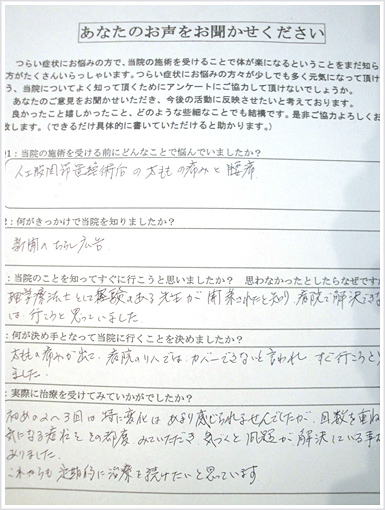 あなたのお声をお聞かせください
つらい症状にお悩みの方で、当院の施術を受けることで体が楽になるということをまだ知ら
方がたくさんいらっしゃいます。つらい症状にお悩みの方々が少しでも多く元気になって頂け
う、当院についてよく知って頂くためにアンケートにご協力して頂けないでしょうか。
あなたのご意見をお聞かせいただき、今後の活動に反映させたいと考えております。
良かったこと嬉しかったこと、どのような些細なことでも結構です。是非ご協力よろしくお
致します。（できるだけ具体的に書いていただけると助かります。）
1：当院の施術を受ける前にどんなことで悩んでいましたか？
人工股関節置換術后の太ももの痛みと腰痛
：何がきっかけで当院を知りましたか？
新聞のちらし広告
：当院のことを知ってすぐに行こうと思いましたか？ 思わなかったとしたらなぜです
理学療法士として経験のある先生が開業されたと知り、病院で解決でき
は、行こうと思っていました
：何が決め手となって当院に行くことを決めましたか？
太ももの痛みが出て、病院のリハではカバーできないと言われ すぐ行こうと
ました
：実際に治療を受けてみていかがでしたか？
初めの2〜3回は特に変化はあまり感じられませんでしたが、回数を重ね
気になる症状をその都度みていただき、気づくと問題が解決している事も
ありました。
これからも定期的に治療を続けたいと思っています